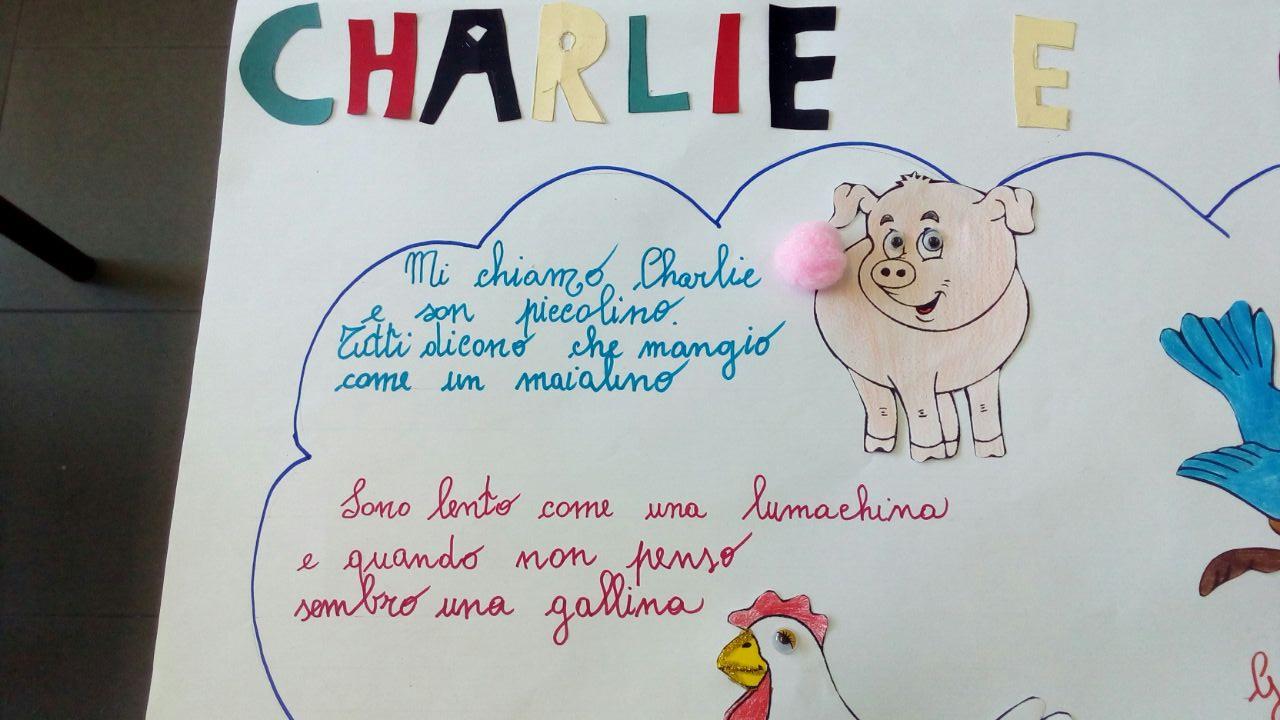 CHARLIE E
Mi chiamo Charlie
e son piccolino.
Tutti dicono che mangio
come un maialino
Sono lento come una lumachina
e quando non penso
sembro una gallina